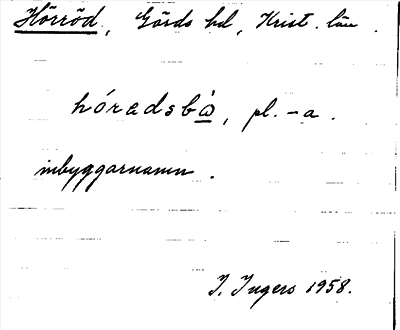 Hörröd, Gärds hd, Krist. län.
hóradsbò, pl. -a.
inbyggarnamn.
I. Ingers 1958.